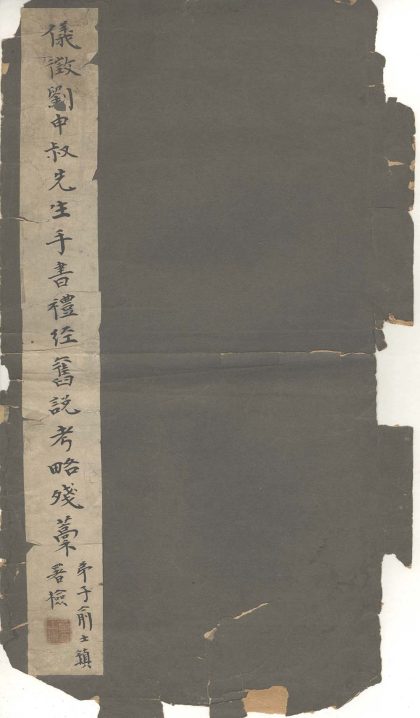 儀徵劉申叔先生手書禮經舊說考略殘藁
弟子俞士鎮
署檢